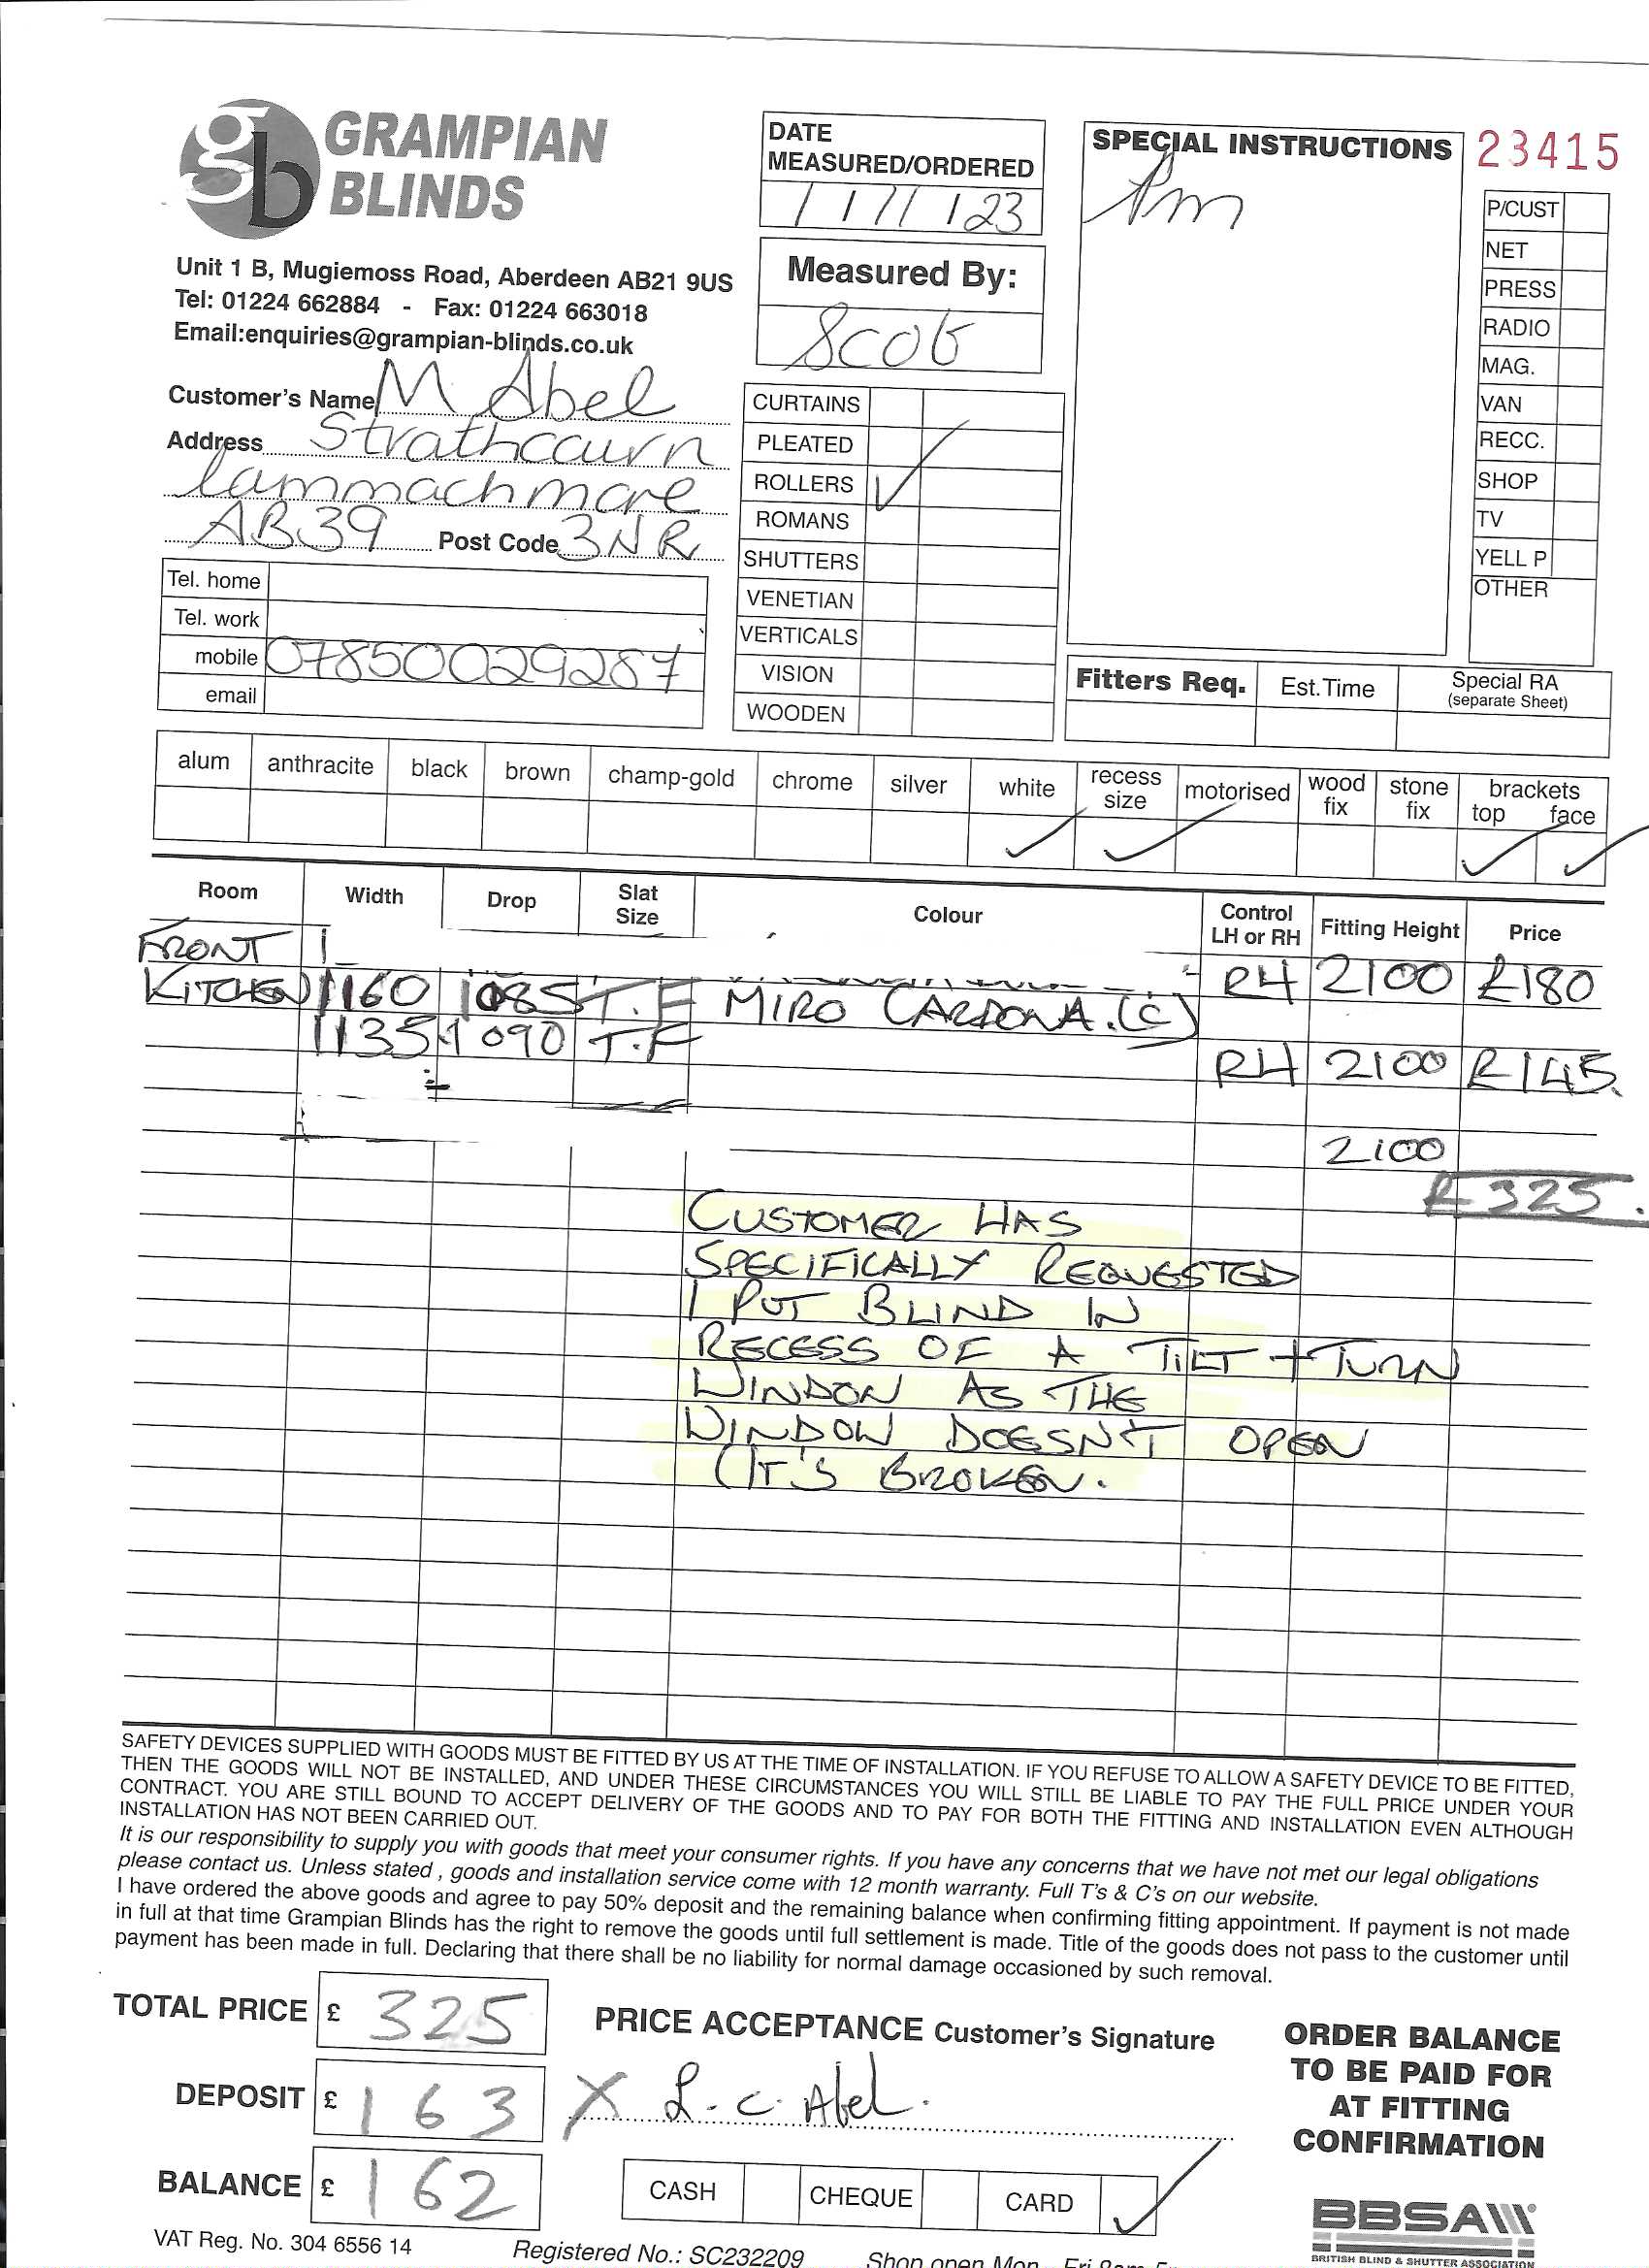 GRAMPIAN
BLINDS
Unit 1 B, Mugiemoss Road, Aberdeen AB21 9US
Tel: 01224 662884 - Fax: 01224 663018
Email:enquiries@grampian-blinds.co.uk
Customer's Name M Abel
Address Strathcairn
lammachmore
AB39 Post Code 3NR
Tel. home
Tel. work
mobile 07850029287
email
DATE
MEASURED/ORDERED
Measured By:
CURTAINS
PLEATED
ROLLERS
ROMANS
SHUTTERS
VENETIAN
VERTICALS
VISION
WOODEN
SPECIAL INSTRUCTIONS
Pm
23415
P/CUST
NET
PRESS
RADIO
MAG.
VAN
RECC.
SHOP
TV
YELL P
OTHER
Fitters Req. Est.Time Special RA
(separate Sheet)
alum anthracite black brown champ-gold chrome silver white recess size motorised wood fix stone fix brackets top face
Room Width Drop Slat Size Colour Control LH or RH Fitting Height Price
FRONT
KITCHEN 1160 1085 T.F MIRO CARDONA.(C) RH 2100 £180
1135 1090 T.F RH 2100 £145.
2100
£325.
CUSTOMER HAS
SPECIFICALLY REQUESTED
I PUT BLIND IN
RECESS OF A TILT + TURN
WINDOW AS THE
WINDOW DOESN'T OPEN
(IT'S BROKEN.
SAFETY DEVICES SUPPLIED WITH GOODS MUST BE FITTED BY US AT THE TIME OF INSTALLATION. IF YOU REFUSE TO ALLOW A SAFETY DEVICE TO BE FITTED,
THEN THE GOODS WILL NOT BE INSTALLED, AND UNDER THESE CIRCUMSTANCES YOU WILL STILL BE LIABLE TO PAY THE FULL PRICE UNDER YOUR
CONTRACT. YOU ARE STILL BOUND TO ACCEPT DELIVERY OF THE GOODS AND TO PAY FOR BOTH THE FITTING AND INSTALLATION EVEN ALTHOUGH
INSTALLATION HAS NOT BEEN CARRIED OUT.
It is our responsibility to supply you with goods that meet your consumer rights. If you have any concerns that we have not met our legal obligations
please contact us. Unless stated , goods and installation service come with 12 month warranty. Full T's & C's on our website.
I have ordered the above goods and agree to pay 50% deposit and the remaining balance when confirming fitting appointment. If payment is not made
in full at that time Grampian Blinds has the right to remove the goods until full settlement is made. Title of the goods does not pass to the customer until
payment has been made in full. Declaring that there shall be no liability for normal damage occasioned by such removal.
TOTAL PRICE £ 325
DEPOSIT £ 163
BALANCE £ 162
PRICE ACCEPTANCE Customer's Signature
X L.C. Abel.
CASH CHEQUE CARD
ORDER BALANCE
TO BE PAID FOR
AT FITTING
CONFIRMATION
BBSA
BRITISH BLIND & SHUTTER ASSOCIATION
VAT Reg. No. 304 6556 14
Registered No.: SC232209
Shop open Mon - Fri